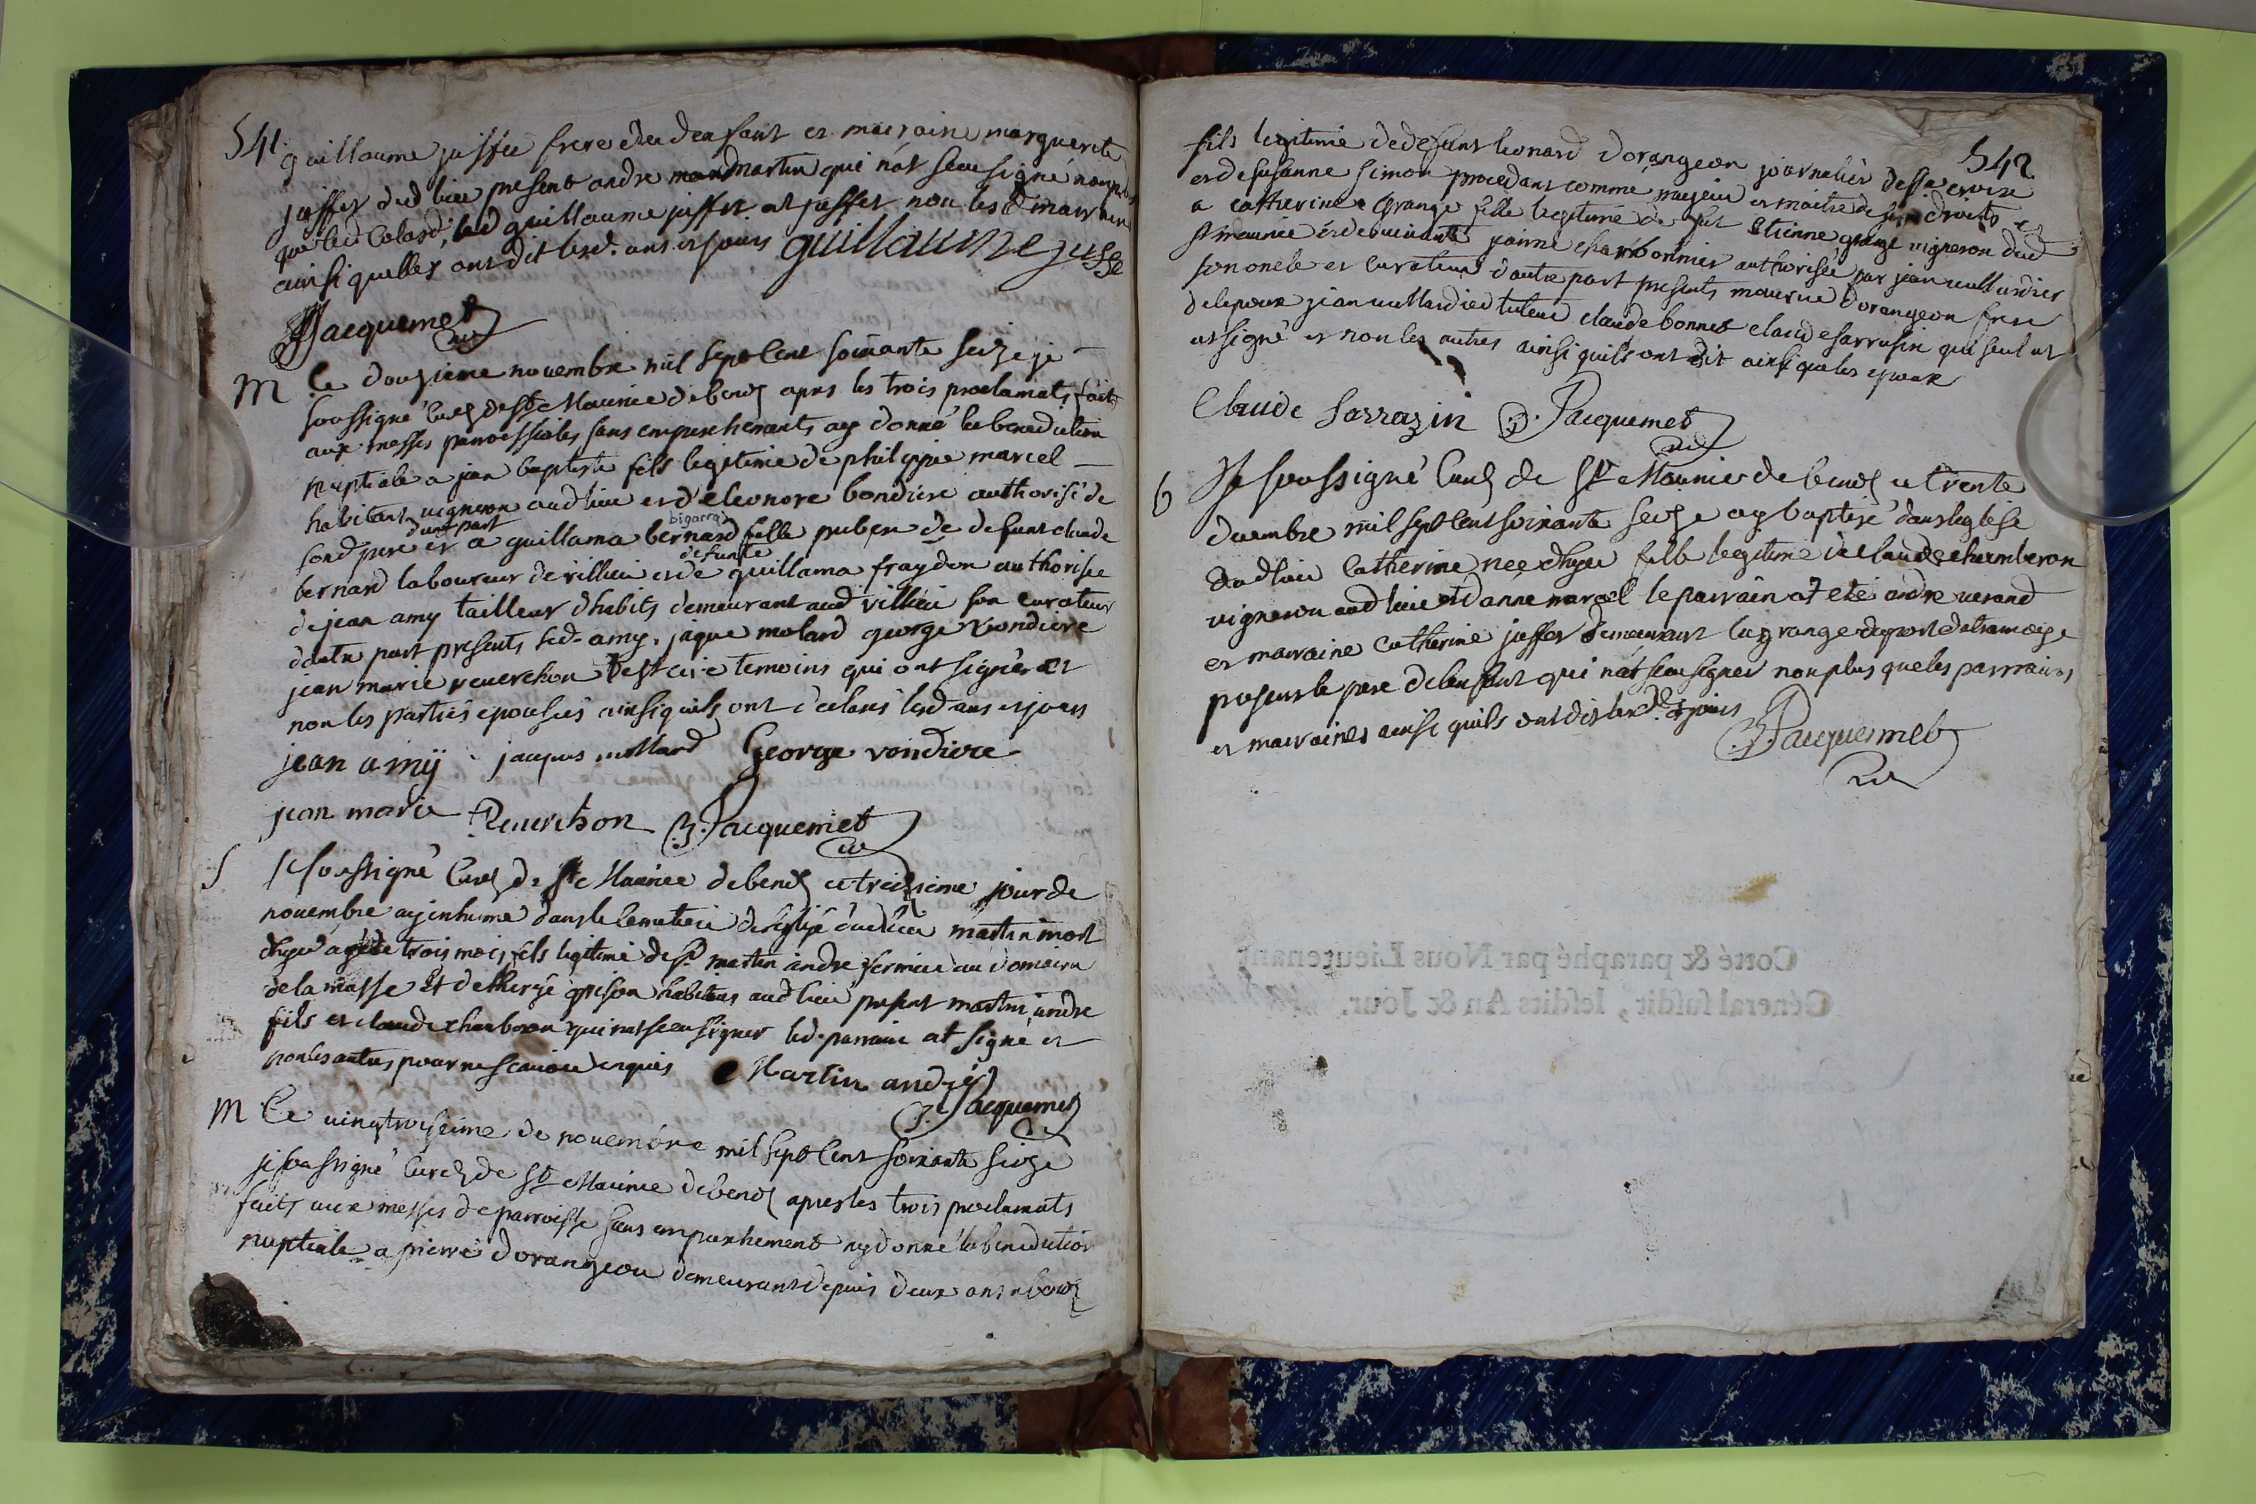 541.
guillaume juffet frere dud enfant et marraine marguerite
juffet dud lieu presents andre martin qui n'at sceu signé non plus
que led Colard, led guillaume juffet at juffet non les d. marraine
ainsi quelles ont dit lesd. ans et jours guillaume juffe
Jacquemet
M Ce douzieme novembre mil sept Cent soixante seize je
soussigné Curé de St Maurice de benoz apres les trois proclamats faits
aux messes parroissiales sans empeschements ay donné la benediction
nuptiale a jean baptiste fils legitime de philippe marcel
habitant vigneron aud lieu et d'eleonore bondiere authorisé de
sond pere d'une part et a guillama bernard bigarra fille pubere de defunt claude
bernard laboureur de villieu et de defunte guillama fraydon authorisee
de jean amy tailleur d'habits demeurant aud villieu son curateur
d'autre part presents led. amy, jaque molard george vondiere
jean marie reverchon temoins qui ont signé et
non les parties epouses ainsi quils ont declarés lesd ans et jours
jean amÿ jacques mollard George vondiere
jean marie Reverchon B. Jacquemet
S Je soussigné Curé de St Maurice de benoz ce treizieme jour de
novembre ay inhumé dans le Cemetiere de l'eglise dud lieu martin mort
d'hyer agé de trois mois, fils legitime de Sr. martin andre fermier au domaine
de la masse et de therese grison habitans aud lieu present martin andre
fils et claude charbon qui n'at sceu signer led. parrain at signé et
non les autres pour ne scavoir enquis Martin andre
B. Jacquemet
M Ce vingtroiseime de novembre mil sept Cent soixante seize
je soussigné Curé de St Maurice de benoz apres les trois proclamats
faits aux messes de parroisse sans empeschements ay donné la benediction
nuptiale a pierre dorangeon demeurant depuis deux ans a benoz
542
fils legitime de defunt leonard dorangeon journalier de Ste croix
et de susanne simon procedant comme majeur et maitre de ses droits et
a catherine Grange fille legitime de fut Etienne grange vigneron dud
st maurice et de vivante janne charbonnier authorisée par jean vullardier
son oncle et curateur d'autre part presents maurice dorangeon frere
de lepoux jean vullardier tuteur claude bonnet claude sarrasin qui seul at
at signé et non les autres ainsi quils ont dit ainsi que les epoux
Claude Sarrazin B. Jacquemet
b Je soussigné Curé de St Maurice de benoz ce trente
decembre mil sept Cent soixante seize ay baptisé dans l'eglise
dud lieu Catherine née d'hyer fille legitime de claude chamberon
vigneron aud lieu et d'anne marcel le parrain at eté andre verand
et marraine catherine juffet demeurant la grange du port
presents le pere de lenfant qui n'at sceu signer non plus que les parrains
et marraines ainsi quils ont dit lesd. ans et jours
B. Jacquemet
Cotté & paraphé par Nous Lieutenant
Géneral susdit, lesdits An & Jour.